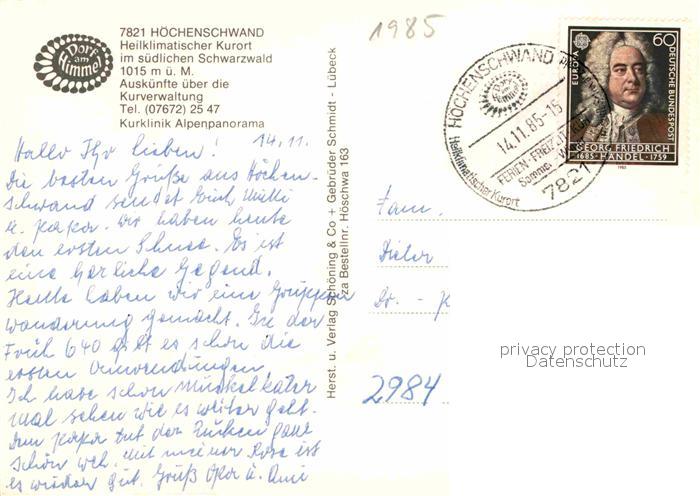 1985
Dorf
am
Himmel
7821 HÖCHENSCHWAND
Heilklimatischer Kurort
im südlichen Schwarzwald
1015 m ü. M.
Auskünfte über die
Kurverwaltung
Tel. (07672) 25 47
Kurklinik Alpenpanorama
14.11.
Hallo Ihr lieben!
Die besten Grüße aus Höchen-
schwand sendet Euch
u. Papa. Wir haben heute
den ersten Schnee. Es ist
eine herliche Gegend.
Heute haben wir eine Gruppen
wanderung gemacht. In der
Früh 640 gibt es schon die
ersten Anwendungen.
Ich habe schon Muskelkater
mal sehen wie es weiter geht.
Dem Papa tut der Rücken ganz
schön weh. Mit meiner ist
es wieder gut. Gruß Opa u. Omi
Herst. u. Verlag Schöning & Co + Gebrüder Schmidt - Lübeck
za Bestellnr. Höschwa 163
HÖCHENSCHWAND
Dorf am Himmel
14.11.85-15
FERIEN-FREIZEIT
Sommer
Heilklimatischer Kurort
7821
EUROPA
60
DEUTSCHE BUNDESPOST
GEORG FRIEDRICH
1685 HÄNDEL 1759
1985
Fam.
Dieter
Dr. - K
privacy protection
Datenschutz
2984